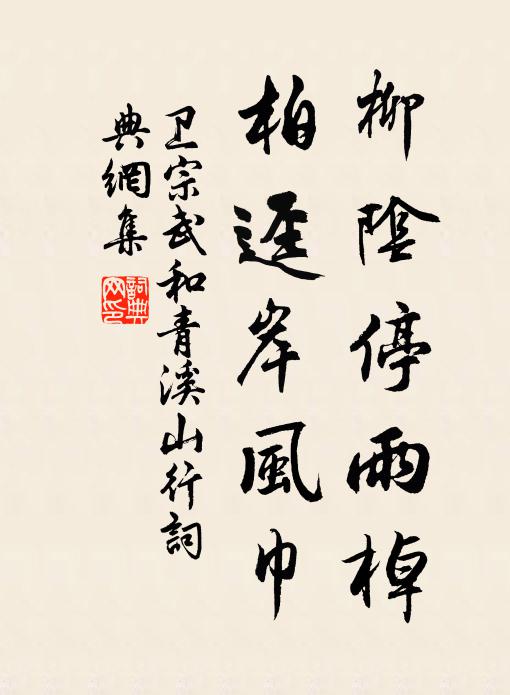 柳陰停雨棹
柏逕岸風巾
卫宗武和青溪山行詞
典網集
詞典網印